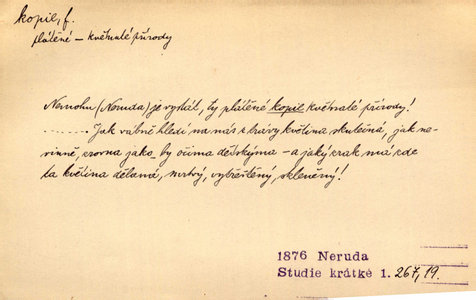 kopil, f.
plátěné – květnaté přírody
Nemohu (Neruda) je vystát, ty plátěné kopil květnaté přírody!
........ Jak vábně hledí na nás z trávy květina skutečná, jak ne-
vinně, zrovna jako by očima dětskýma – a jaký zrak má zde
ta květina dělaná, mrtvý, vybreštěný, skleněný!
1876 Neruda
Studie krátké 1. 267, 19.